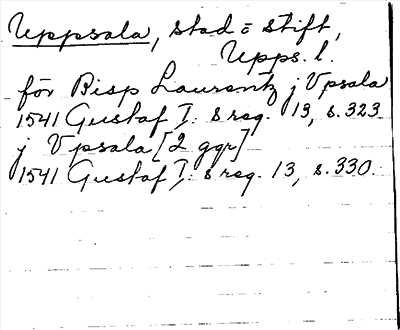 Uppsala, stad o stift,
Upps. l.
för Bisp Laurentz j Vpsala
1541 Gustaf I: s reg. 13, s. 323
j Vpsala [2 ggr]
1541 Gustaf I: s reg. 13, s. 330.